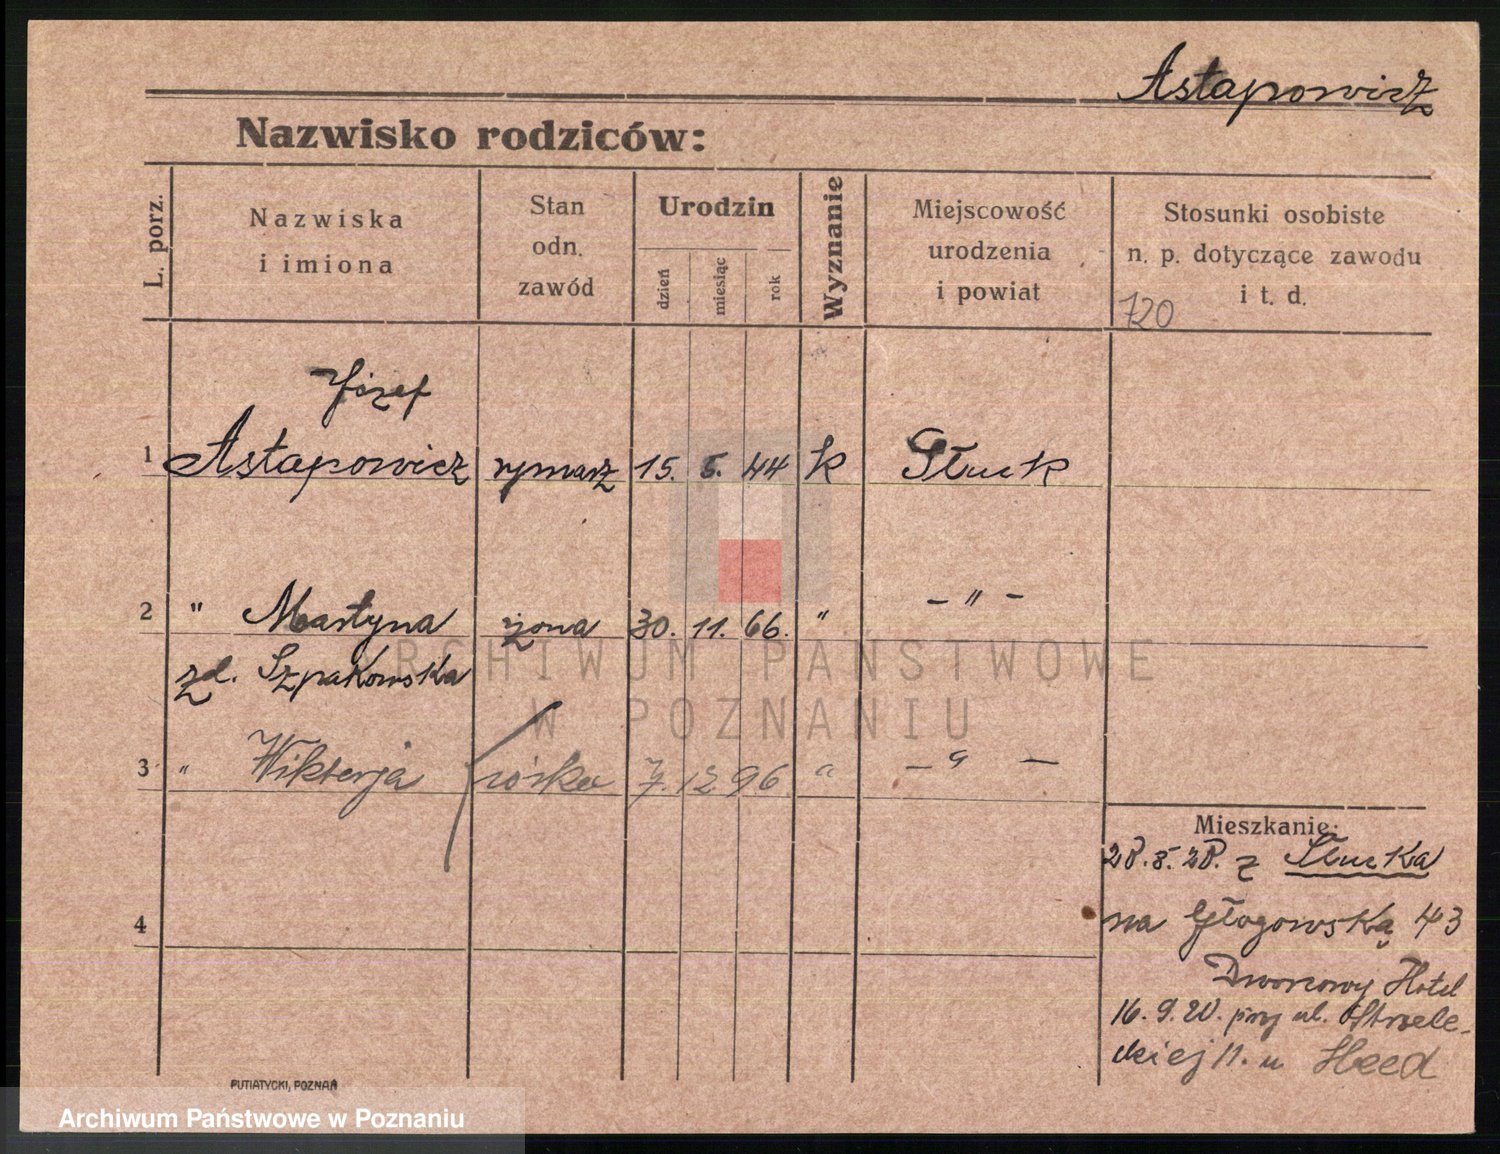 Astapowicz
Nazwisko rodziców:
L. porz.
Nazwiska
i imiona
Stan
odn.
zawód
Urodzin
dzień
miesiąc
rok
Wyznanie
Miejscowość
urodzenia
i powiat
Stosunki osobiste
n. p. dotyczące zawodu
i t. d.
720
Józef
1 Astapowicz rymarz 15. 5. 44 k Słuck
2 " Martyna żona 30. 11. 66. " - " -
zd. Szpakowska
3 " Wikterja córka 7. 12 96 " - " -
4
Mieszkanie:
28.8.20. z Słucka
na Głogowską 43
Dworcowy Hotel
16.9.20. przy ul. Strzele-
ckiej 11. u Heed
PUTIATYCKI, POZNAŃ
ARCHIWUM PAŃSTWOWE
W POZNANIU
Archiwum Państwowe w Poznaniu